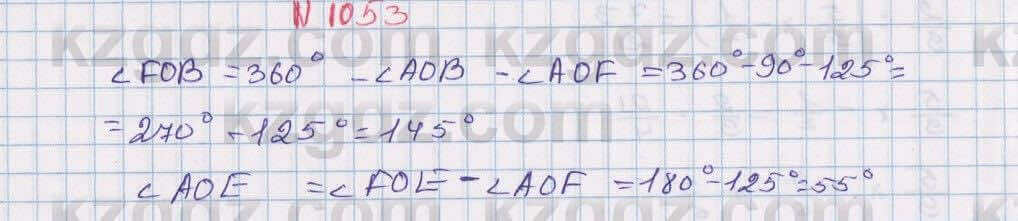 N 1053
∠FOB = 360° - ∠AOB - ∠AOF = 360° - 90° - 125° =
= 270° - 125° = 145°
∠AOE = ∠FOE - ∠AOF = 180° - 125° = 55°
kzgdz.com kzgdz.com
kzgdz.com